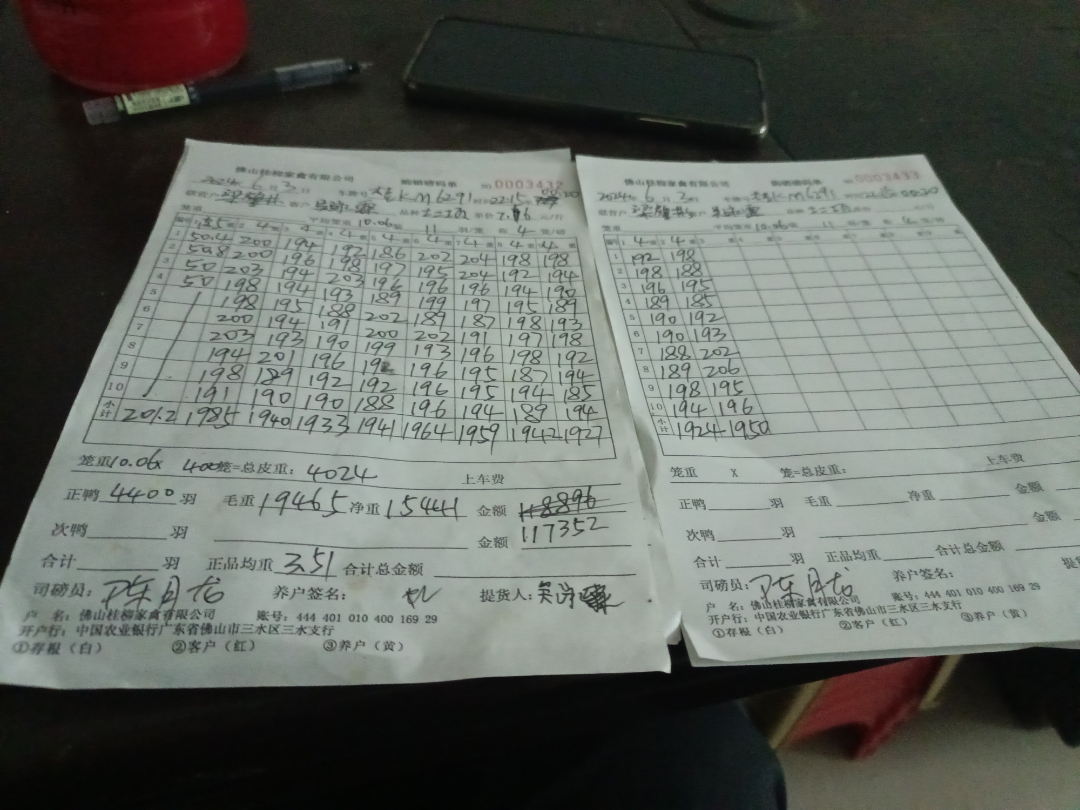 佛山桂柳家禽有限公司 购销磅码单 No 0003432
2024年6月3日 车牌号 KM6291
平均笼重 10.06 11 只/笼 每 4 笼/磅
1 50.4 200 194 192 186 202 204 198 198
2 50.8 200 196 198 197 195 204 192 194
3 50 203 194 203 196 196 196 194 190
4 50 198 194 193 189 199 197 195 189
5 198 195 188 202 189 187 198 193
6 200 194 191 200 202 191 197 198
7 203 193 190 199 193 196 198 192
8 194 201 196 192 196 195 187 194
9 198 189 192 192 196 195 194 185
10 191 190 190 188 196 194 189 194
小计 201.2 1985 1940 1933 1941 1964 1959 1942 1927
笼重10.06x 400笼=总皮重：4024 上车费
正鸭 4400 羽 毛重 19465 净重 15441 金额 118896
次鸭 羽 金额 117352
合计 羽 正品均重 3.51 合计总金额
司磅员：陈月龙 养户签名： 提货人：
户 名：佛山桂柳家禽有限公司 账号：444 401 010 400 169 29
开户行：中国农业银行广东省佛山市三水区三水支行
①存根（白） ②客户（红） ③养户（黄）
佛山桂柳家禽有限公司 购销磅码单 No 0003433
2024年6月3日 车牌号 KM6291
平均笼重 10.06
1 192 198
2 198 188
3 196 195
4 189 185
5 190 192
6 190 193
7 188 202
8 189 206
9 198 195
10 194 196
小计 1924 1950
笼重 X 笼=总皮重： 上车费
正鸭 羽 毛重 净重 金额
次鸭 羽 金额
合计 羽 正品均重 合计总金额
司磅员：陈月龙 养户签名：
户 名：佛山桂柳家禽有限公司 账号：444 401 010 400 169 29
开户行：中国农业银行广东省佛山市三水区三水支行
①存根（白） ②客户（红） ③养户（黄）